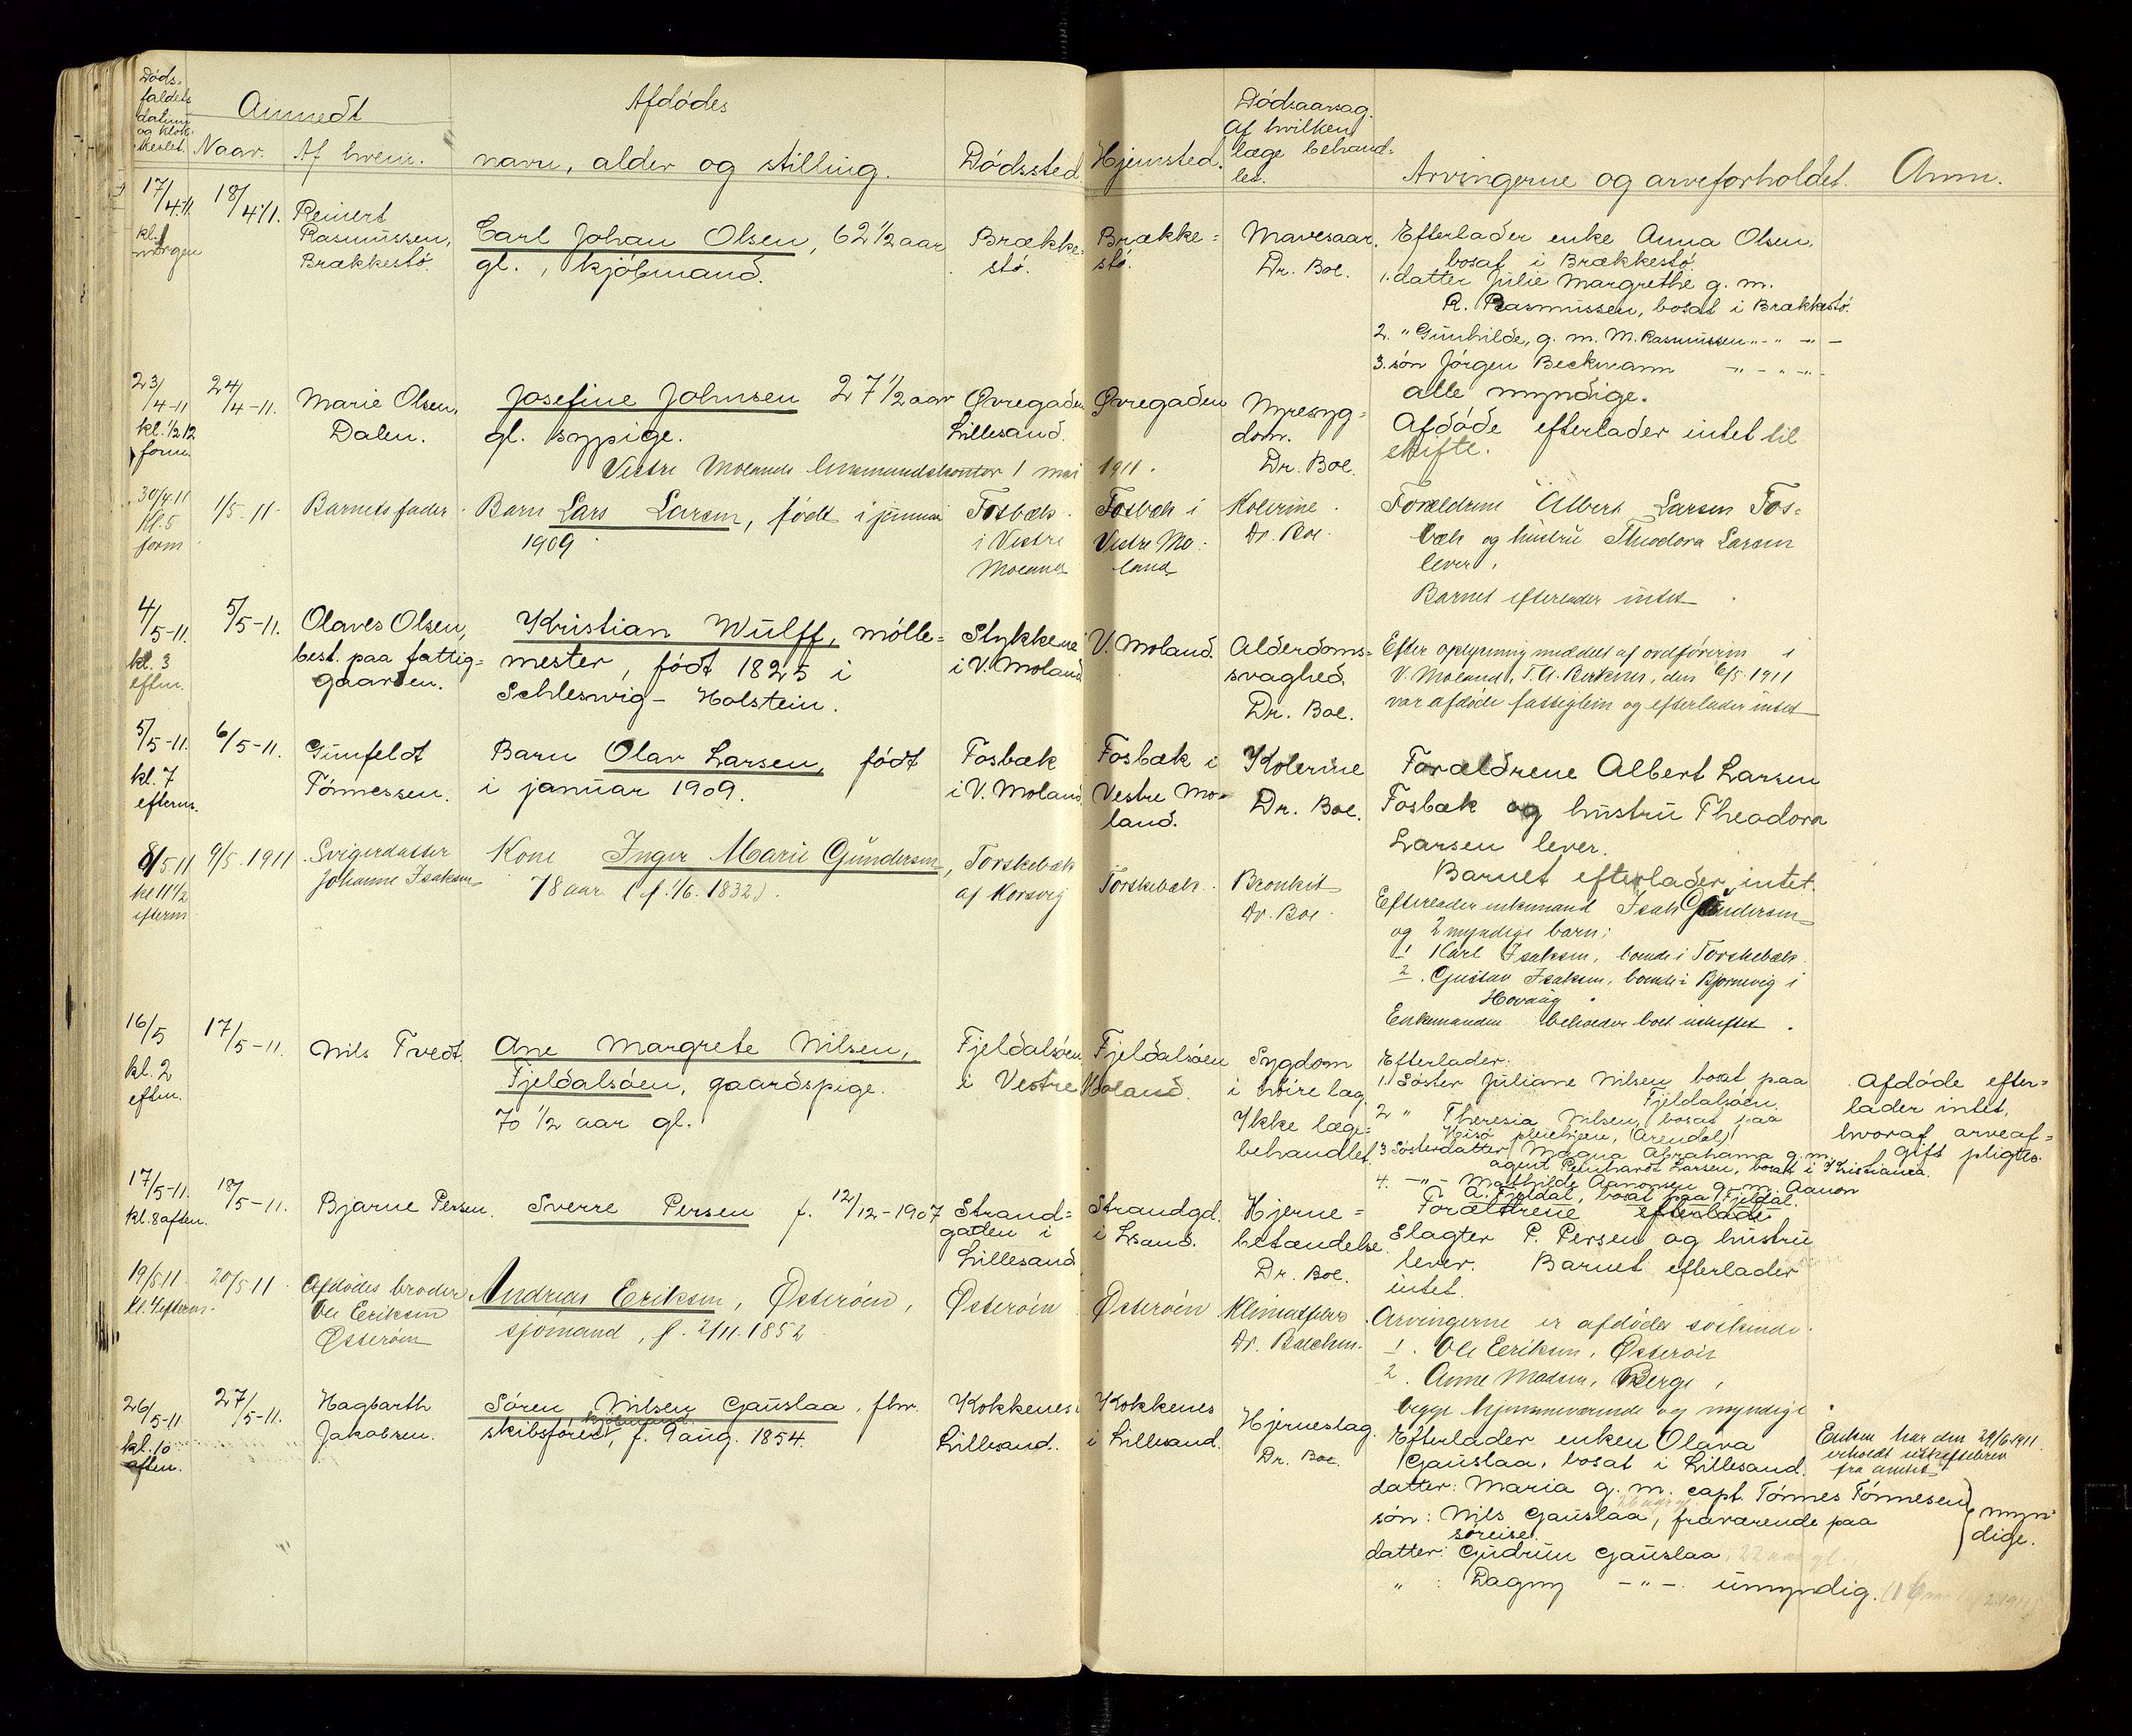 Døds-
faldets
datum
og klok-
keslet.
Anmeldt
Naar. Af hvem.
Afdødes
navn, alder og stilling.
Dødssted.
Hjemsted.
Dødsaarsag.
Af hvilken
læge behand-
let.
Arvingerne og arveforholdet.
Anm.
17/4-11.
kl. 1
morgen
18/4-11.
Reinert
Rasmussen,
Brækkestø.
Carl Johan Olsen, 62 1/2 aar
gl., kjøbmand.
Brække-
stø.
Brække-
stø.
Mavesaar.
Dr. Boe.
Efterlader enke Anna Olsen,
bosat i Brækkestø.
1. datter Julie Margrethe g. m.
R. Rasmussen, bosat i Brækkestø.
2. " Gunhilde, g. m. M. Rasmussen -"- -"-
3. søn Jørgen Beckmann -"- -"-
alle myndige.
23/4-11
kl. 1/2 12
form.
24/4-11.
Marie Olsen,
Dalen.
Josefine Johnsen 27 1/2 aar
gl. sypige.
Øvregaden
Lillesand.
Øvregaden
Nyresyg-
dom.
Dr. Boe.
Afdøde efterlader intet til
skifte.
Vestre Molands lensmandskontor 1 mai 1911.
30/4 11
kl. 5
form
1/5-11-
Barnets fader.
Barn Lars Larsen, født i januar
1909
Fosbæk
i Vestre
Moland
Fosbæk i
Vestre Mo-
land
Kolerine.
Dr. Boe.
Forældrene Albert Larsen Fos-
bæk og hustru Theodora Larsen
lever.
Barnet efterlader intet
4/5-11.
kl. 3
eftm.
5/5-11.
Olaves Olsen,
best. paa fattig-
gaarden.
Kristian Wulff, mølle-
mester, født 1825 i
Schleswig-Holstein.
Stykkene
i V. Moland
V. Moland.
Alderdoms-
svaghed
Dr. Boe.
Efter oplysning meddelt af ordføreren i
V. Moland, T. A. Birkenes, den 6/5-1911
var afdøde fattiglem og efterlader intet
5/5-11.
kl. 7
efterm.
6/5-11.
Gunfeldt
Tønnessen.
Barn Olav Larsen, født
i januar 1909.
Fosbæk
i V. Moland
Fosbæk i
Vestre Mo-
land.
Kolerine
Dr. Boe.
Forældrene Albert Larsen
Fosbæk og hustru Theodora
Larsen lever.
Barnet efterlader intet.
8/5 11
kl 11 1/2
efterm
9/5-1911
Svigerdatter
Johanne Isaksen
Kone Inger Marie Gundersen,
78 aar (f. 1/6. 1832).
Torskebæk
af Korsvig
Torskebæk.
Bronkit
Dr. Boe.
Efterlader enkemand Isak Gundersen
og 2 myndige barn:
1 Karl Isaksen, boende i Torskebæk.
2. Gustav Isaksen, boende i Bjørnevig i
Høvaag
Enkemanden beholder boet uskiftet.
16/5
kl. 2
eftm.
17/5-11.
Nils Tvedt
Ane Margrete Nilsen,
Fjeldalsøen, gaardspige.
70 1/2 aar gl.
Fjeldalsøen
i Vestre Moland.
Fjeldalsøen
Sygdom
i høire læg
Ykke læge-
behandlet.
Efterlader:
1. Søster Juliane Nilsen bosat paa
Fjeldalsøen.
2 " Theresia Nilsen, bosat paa
Hisø pleiehjem, (Arendal)
3. Søsterdatter Magna Abrahama g. m.
agent Reinhardt Larsen, bosat i Kristiania.
4. -"- Mathilde Aanonsen g. m. Aanon
A. Fjeldal, bosat paa Fjeldal.
Afdøde efter-
lader intet,
hvoraf arveaf-
gift pligtes.
17/5-11.
kl. 8 aften.
18/5-11.
Bjarne Persen.
Sverre Persen f. 12/12-1907
Strand-
gaden i
Lillesand
Strandgd.
i Lsand.
Hjerne-
betændelse.
Dr. Boe.
Forældrene efterlade
Slagter P. Persen og hustru
lever. Barnet efterlader
intet.
19/5 11
kl. 4 efterm.
20/5 11
Afdødes broder
Ole Eriksen
Østerøen
Andreas Eriksen, Østerøen,
sjømand, f. 2/11. 1852
Østerøen
Østerøen
Klimatfeber
Dr. Balchen.
Arvingerne er afdødes søskende.
1. Ole Eriksen, Østerøen
2. Anne Madsen, Berge,
begge hjemmeværende og myndige
26/5-11
kl. 10
aften.
27/5-11.
Hagbarth
Jakobsen.
Søren Nilsen Gauslaa, fhv.
skibsfører, kjøbmand, f. 9 aug. 1854.
Kokkenes i
Lillesand.
Kokkenes
i Lillesand.
Hjerneslag.
Dr. Boe.
Efterlader enken Olava
Gauslaa, bosat i Lillesand.
datter: Maria g. m. capt. Tønnes Tønnesen
søn: Nils Gauslaa, fraværende paa
søreise.
datter: Gudrun Gauslaa, 22 aar gl.
" : Dagny -"- umyndig.
myn-
dige.
Enken har den 29/6 1911
erholdt uskiftebrev
fra amtet